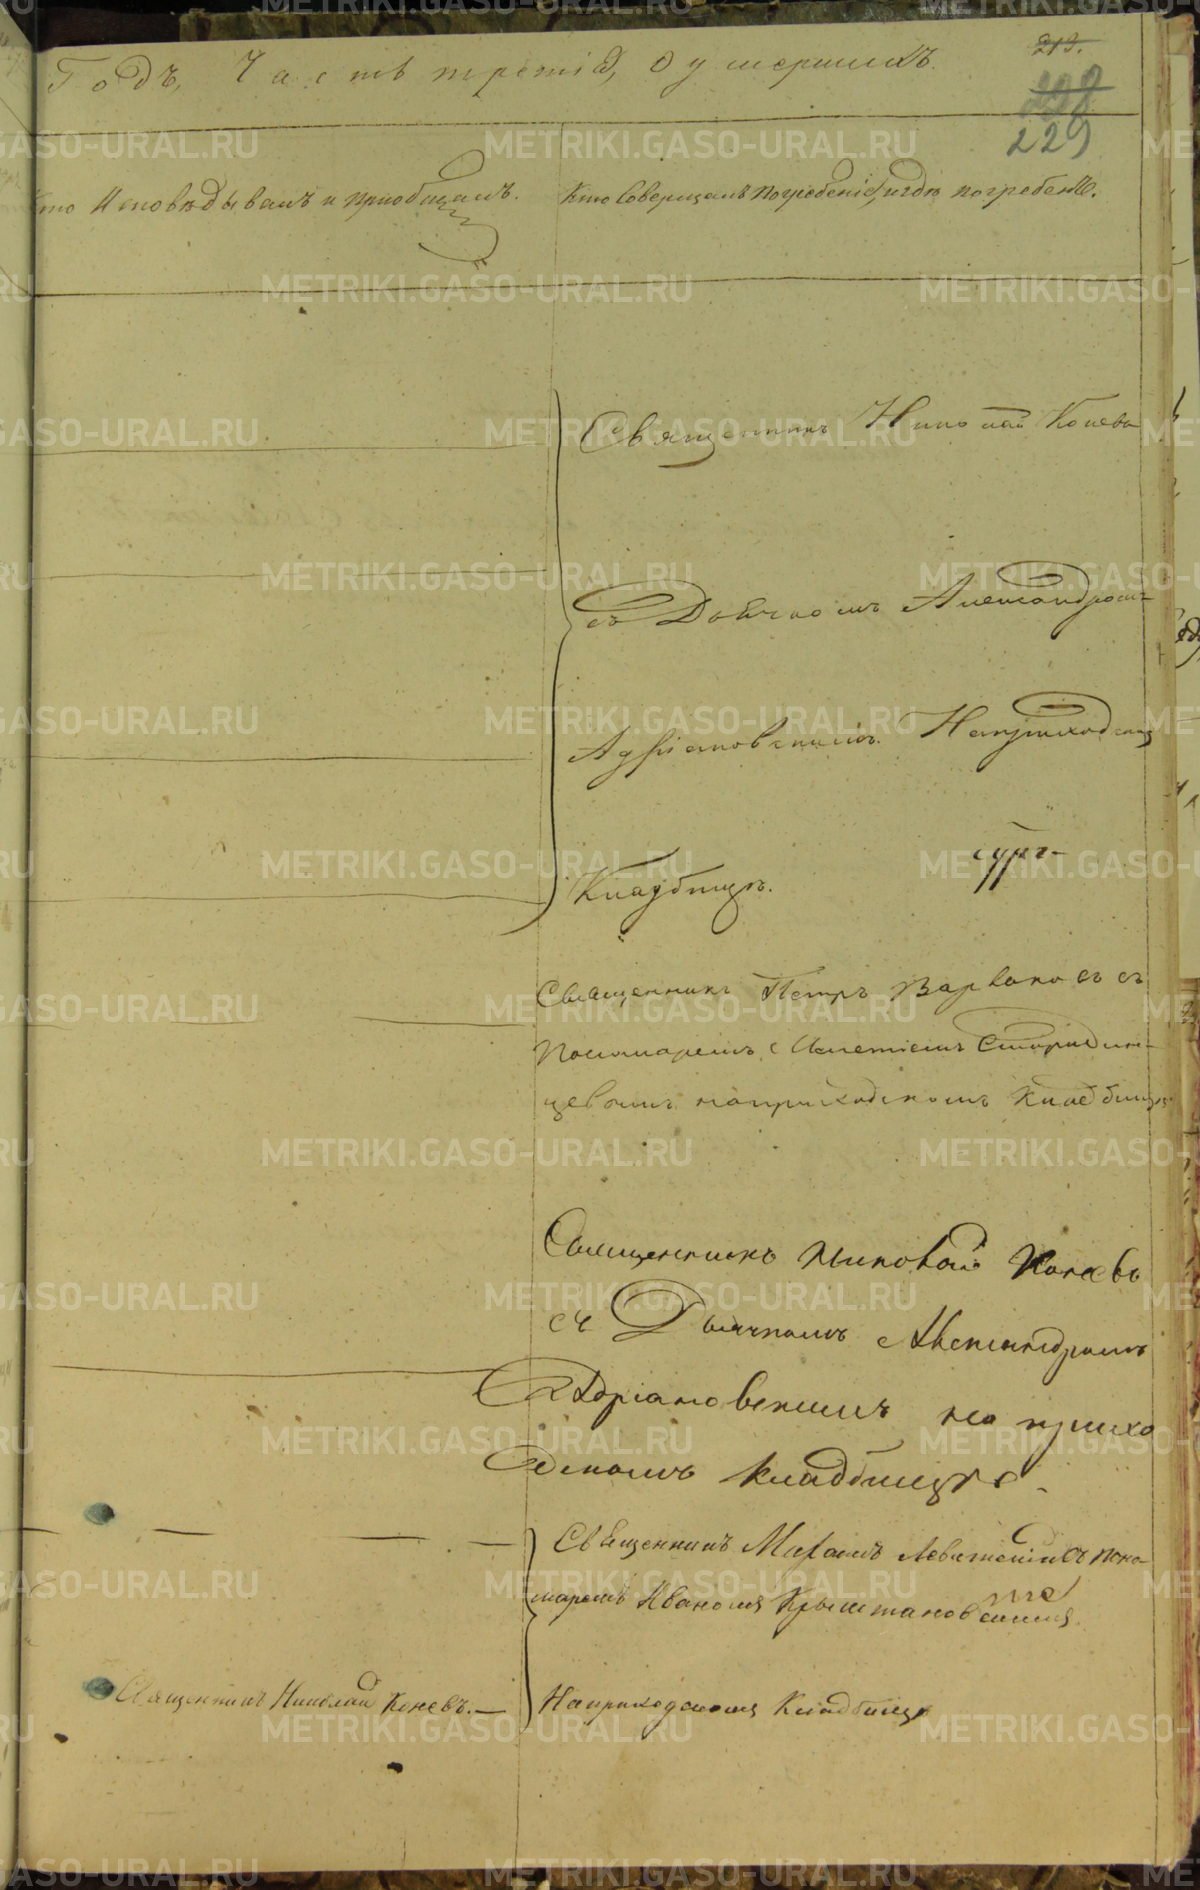 219.
Годъ, Часть третія, о умершихъ.
229
Кто исповѣдывалъ и пріобщалъ.
Кто совершалъ погребеніе, и гдѣ погребены.
Священникъ Николай Коневъ
съ Дьячкомъ Александромъ
Адріановскимъ. На приходском
Кладбищѣ.
Священникъ Петръ Варваковъ съ
Пономаремъ
цевымъ на приходскомъ Кладбищѣ
Священникъ Николай Коневъ
съ Дьячкомъ Александромъ
Адріановскимъ на прихо
дскомъ кладбищѣ.
Священникъ Левитскій съ поно-
маремъ Иваномъ Крыштановскимъ
Священникъ Николай Коневъ. —
На приходскомъ Кладбищѣ
METRIKI.GASO-URAL.RU